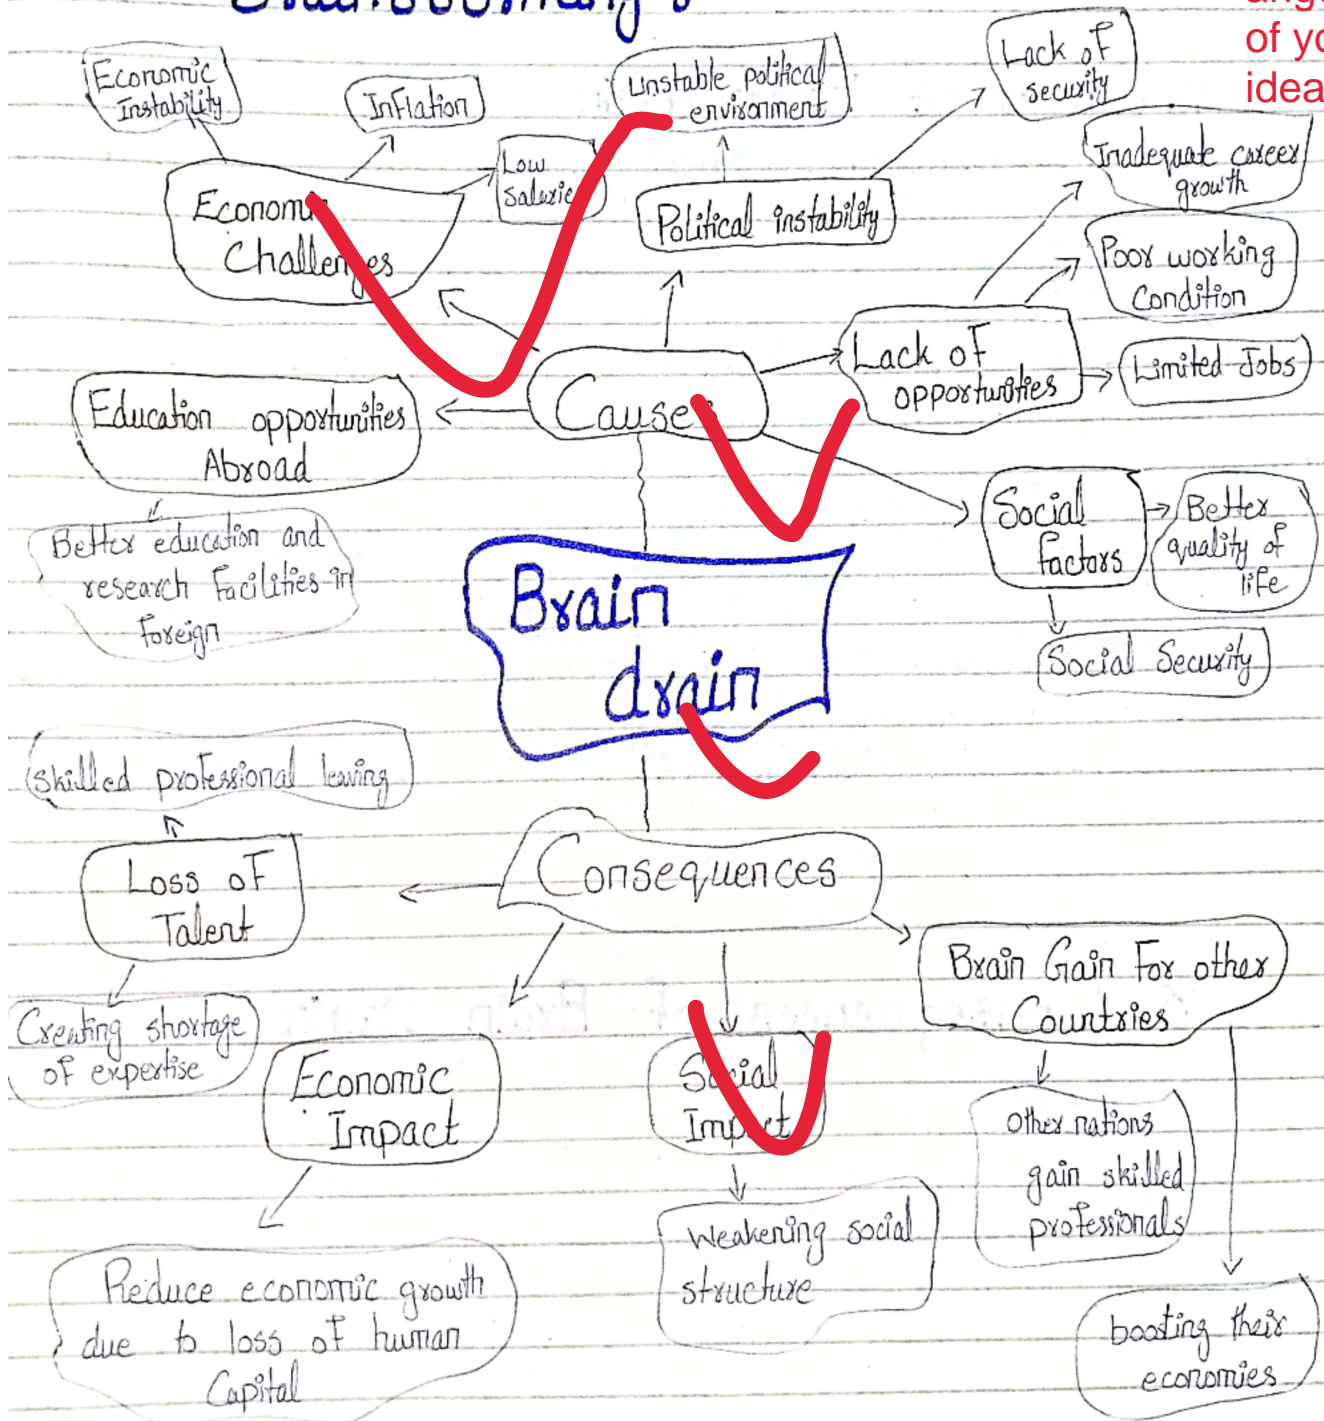 Brainstorming:
of yo
idea
Economic
Instability
Inflation
Low
Salarie
Unstable political
environment
Lack of
security
Economic
Challenges
Political instability
Inadequate career
growth
Poor working
Condition
Lack of
opportunities
Limited Jobs
Causes
Education opportunities
Abroad
Better education and
research facilities in
foreign
Social
factors
Better
quality of
life
Social Security
Brain
drain
skilled professional leaving
Loss of
Talent
Creating shortage
of expertise
Consequences
Economic
Impact
Reduce economic growth
due to loss of human
Capital
Social
Impact
Weakening social
structure
Brain Gain For other
Countries
Other nations
gain skilled
professionals
boosting their
economies